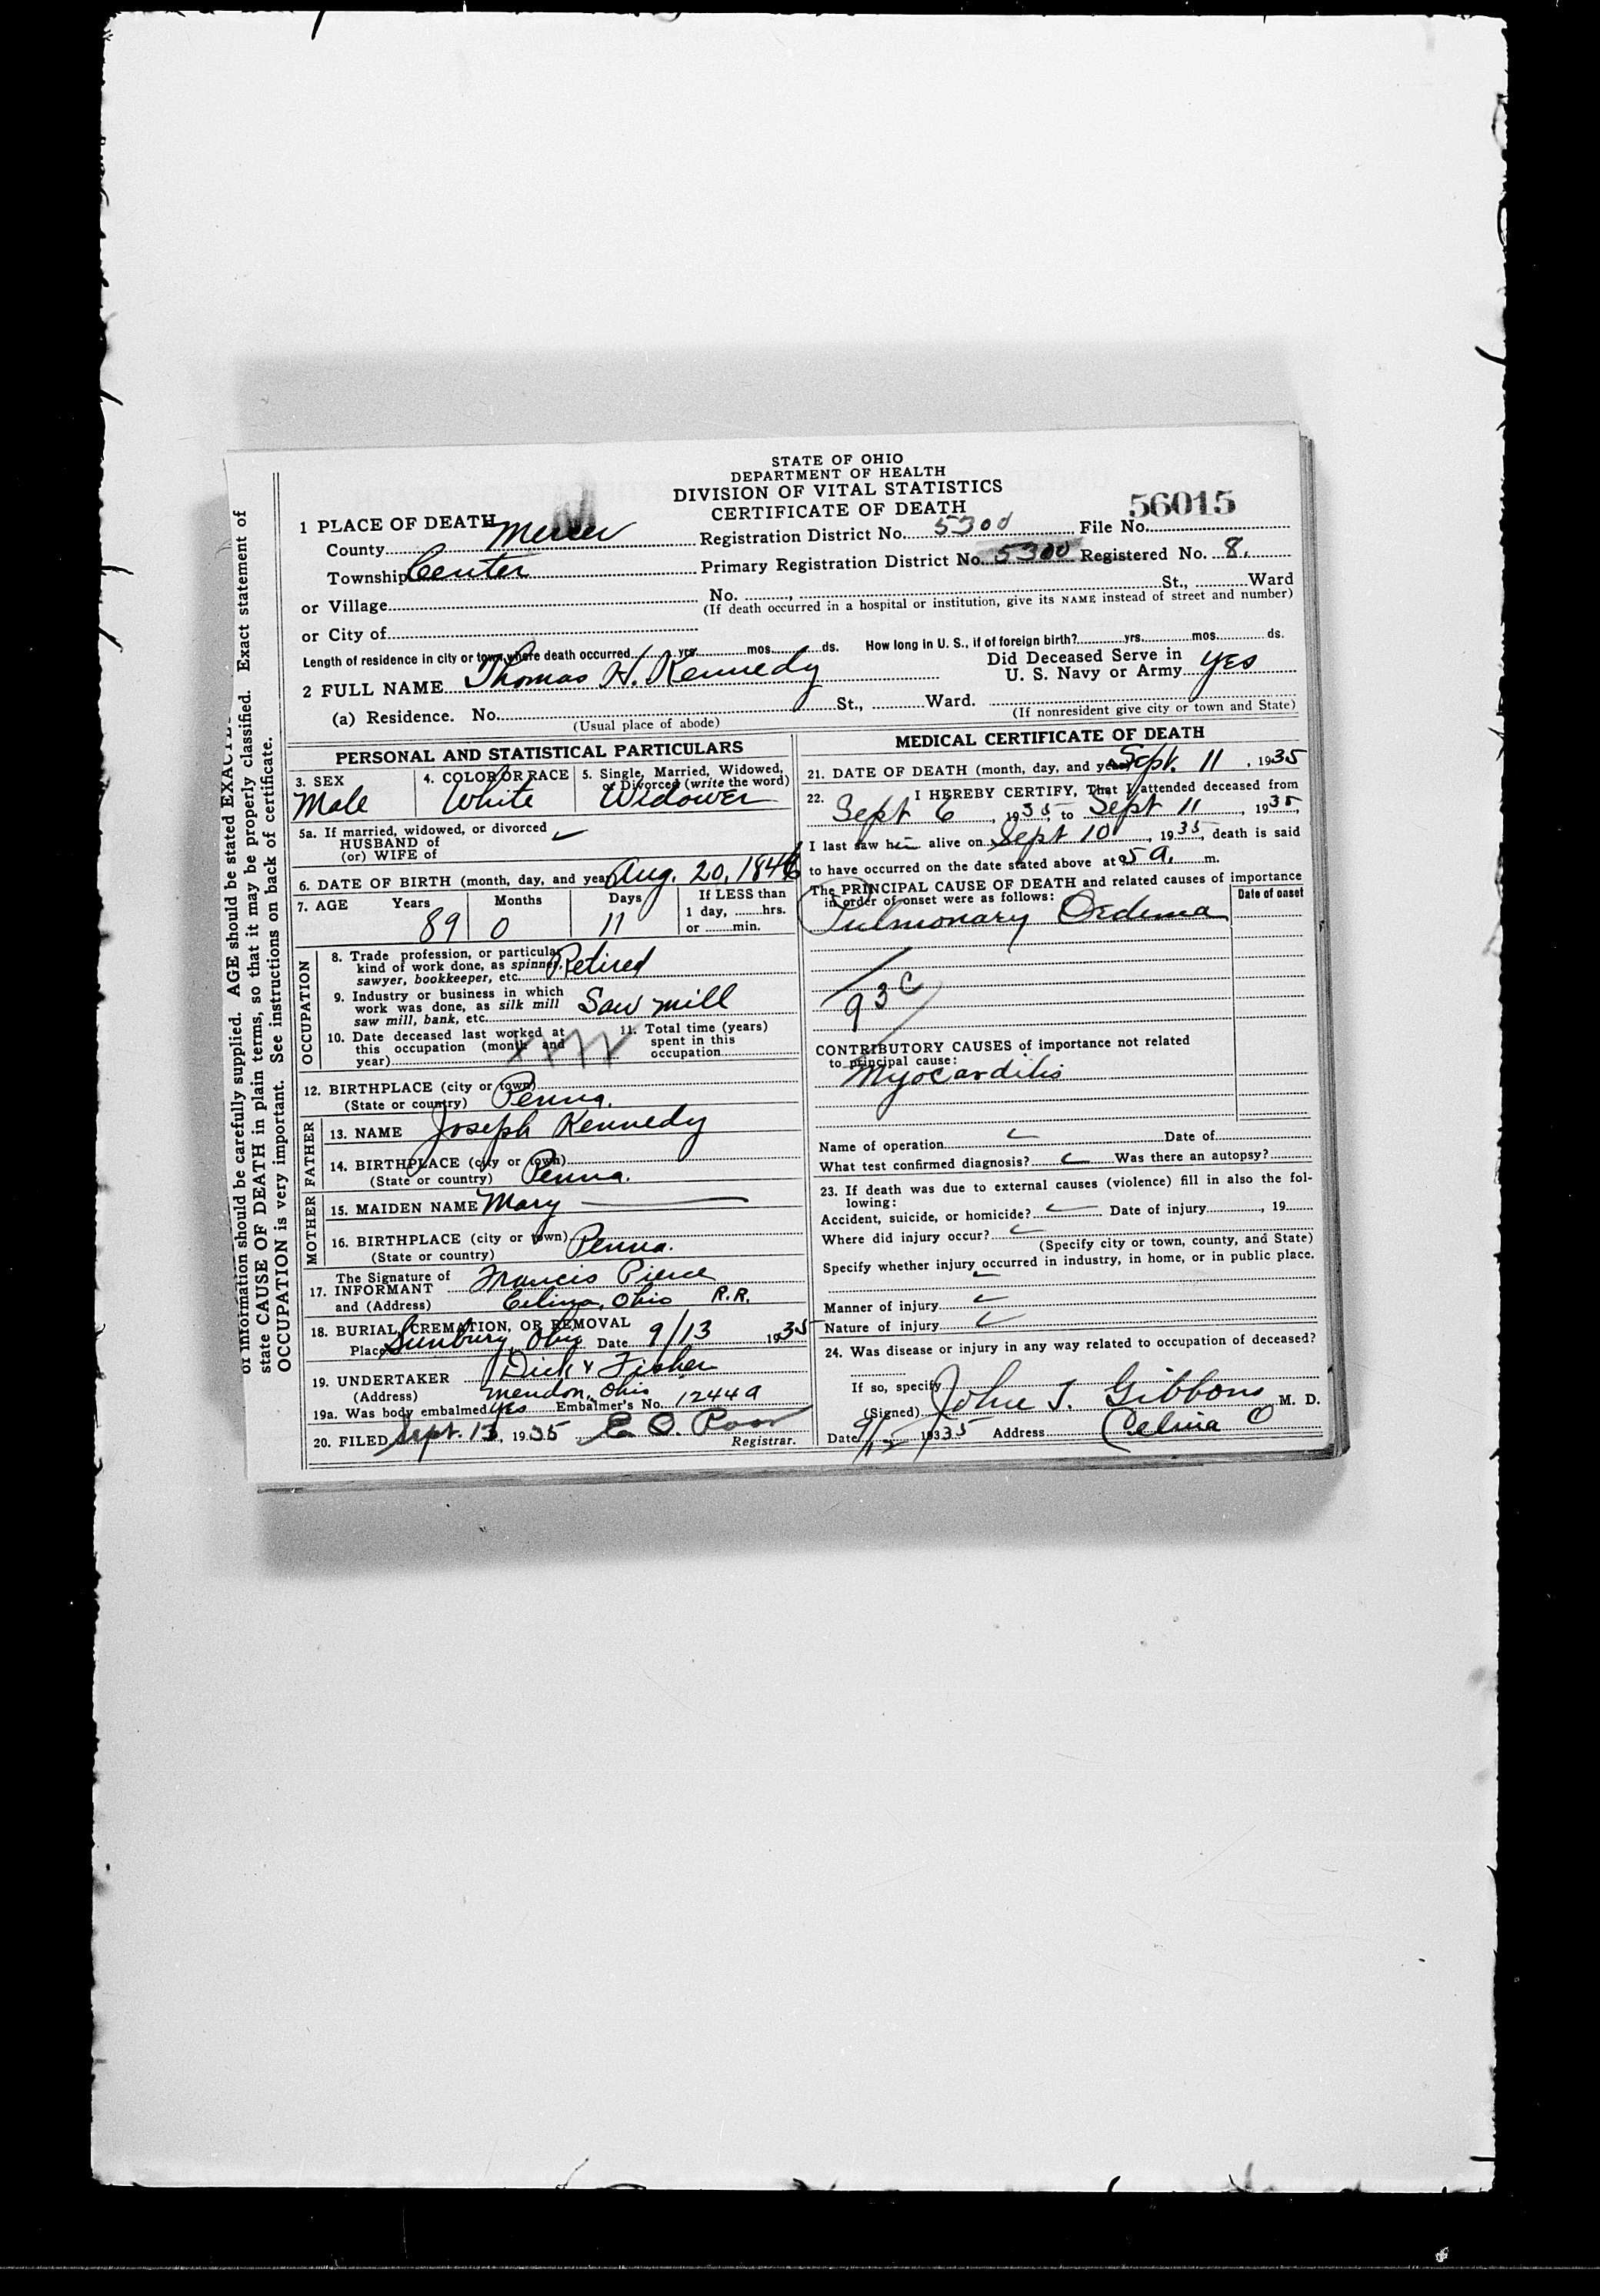 STATE OF OHIO
DEPARTMENT OF HEALTH
DIVISION OF VITAL STATISTICS
CERTIFICATE OF DEATH
56015
1 PLACE OF DEATH
County Mercer Registration District No. 5300 File No.
Township Center Primary Registration District No. 5300 Registered No. 8.
or Village No. , St., Ward
(If death occurred in a hospital or institution, give its NAME instead of street and number)
or City of
Length of residence in city or town where death occurred yrs. mos. ds. How long in U. S., if of foreign birth? yrs. mos. ds.
2 FULL NAME Thomas H. Kennedy Did Deceased Serve in U. S. Navy or Army yes
(a) Residence. No. St., Ward.
(Usual place of abode) (If nonresident give city or town and State)
PERSONAL AND STATISTICAL PARTICULARS
3. SEX 4. COLOR OR RACE 5. Single, Married, Widowed, or Divorced (write the word)
Male White Widower
5a. If married, widowed, or divorced
HUSBAND of
(or) WIFE of
6. DATE OF BIRTH (month, day, and year) Aug. 20, 1846
7. AGE Years Months Days If LESS than
1 day, hrs.
89 0 11 or min.
OCCUPATION
8. Trade profession, or particular
kind of work done, as spinner, Retired
sawyer, bookkeeper, etc.
9. Industry or business in which
work was done, as silk mill Saw mill
saw mill, bank, etc.
10. Date deceased last worked at
this occupation (month and
year)
11. Total time (years)
spent in this
occupation
12. BIRTHPLACE (city or town)
(State or country) Penna.
FATHER
13. NAME Joseph Kennedy
14. BIRTHPLACE (city or town)
(State or country) Penna.
MOTHER
15. MAIDEN NAME Mary
16. BIRTHPLACE (city or town)
(State or country) Penna.
The Signature of
17. INFORMANT Francis Pierce
and (Address) Celina, Ohio R.R.
18. BURIAL, CREMATION, OR REMOVAL
Place Sunbury, Ohio Date 9/13 1935
19. UNDERTAKER Dick & Fisher
(Address) Mendon, Ohio
19a. Was body embalmed yes Embalmer's No. 1244A
20. FILED Sept. 13, 1935 E. O. Poor
Registrar.
MEDICAL CERTIFICATE OF DEATH
21. DATE OF DEATH (month, day, and year) Sept. 11, 1935
22. I HEREBY CERTIFY, That I attended deceased from
Sept 6, 1935, to Sept 11, 1935,
I last saw him alive on Sept 10, 1935, death is said
to have occurred on the date stated above at 5 a. m.
The PRINCIPAL CAUSE OF DEATH and related causes of importance
in order of onset were as follows: Date of onset
Pulmonary Oedema
93c
CONTRIBUTORY CAUSES of importance not related
to principal cause:
Myocarditis
Name of operation Date of
What test confirmed diagnosis? Was there an autopsy?
23. If death was due to external causes (violence) fill in also the fol-
lowing:
Accident, suicide, or homicide? Date of injury , 19
Where did injury occur?
(Specify city or town, county, and State)
Specify whether injury occurred in industry, in home, or in public place.
Manner of injury
Nature of injury
24. Was disease or injury in any way related to occupation of deceased?
If so, specify
(Signed) John T. Gibbons M. D.
Date 9/12 1935 Address Celina O
of information should be carefully supplied. AGE should be stated EXACTLY. Exact statement of
state CAUSE OF DEATH in plain terms, so that it may be properly classified.
OCCUPATION is very important. See instructions on back of certificate.